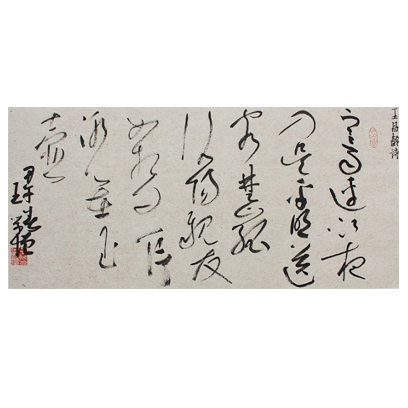 王昌齡詩
寒雨連江夜
入吳平明送
客楚山孤
洛陽親友
如相問一片
冰心在玉
壺